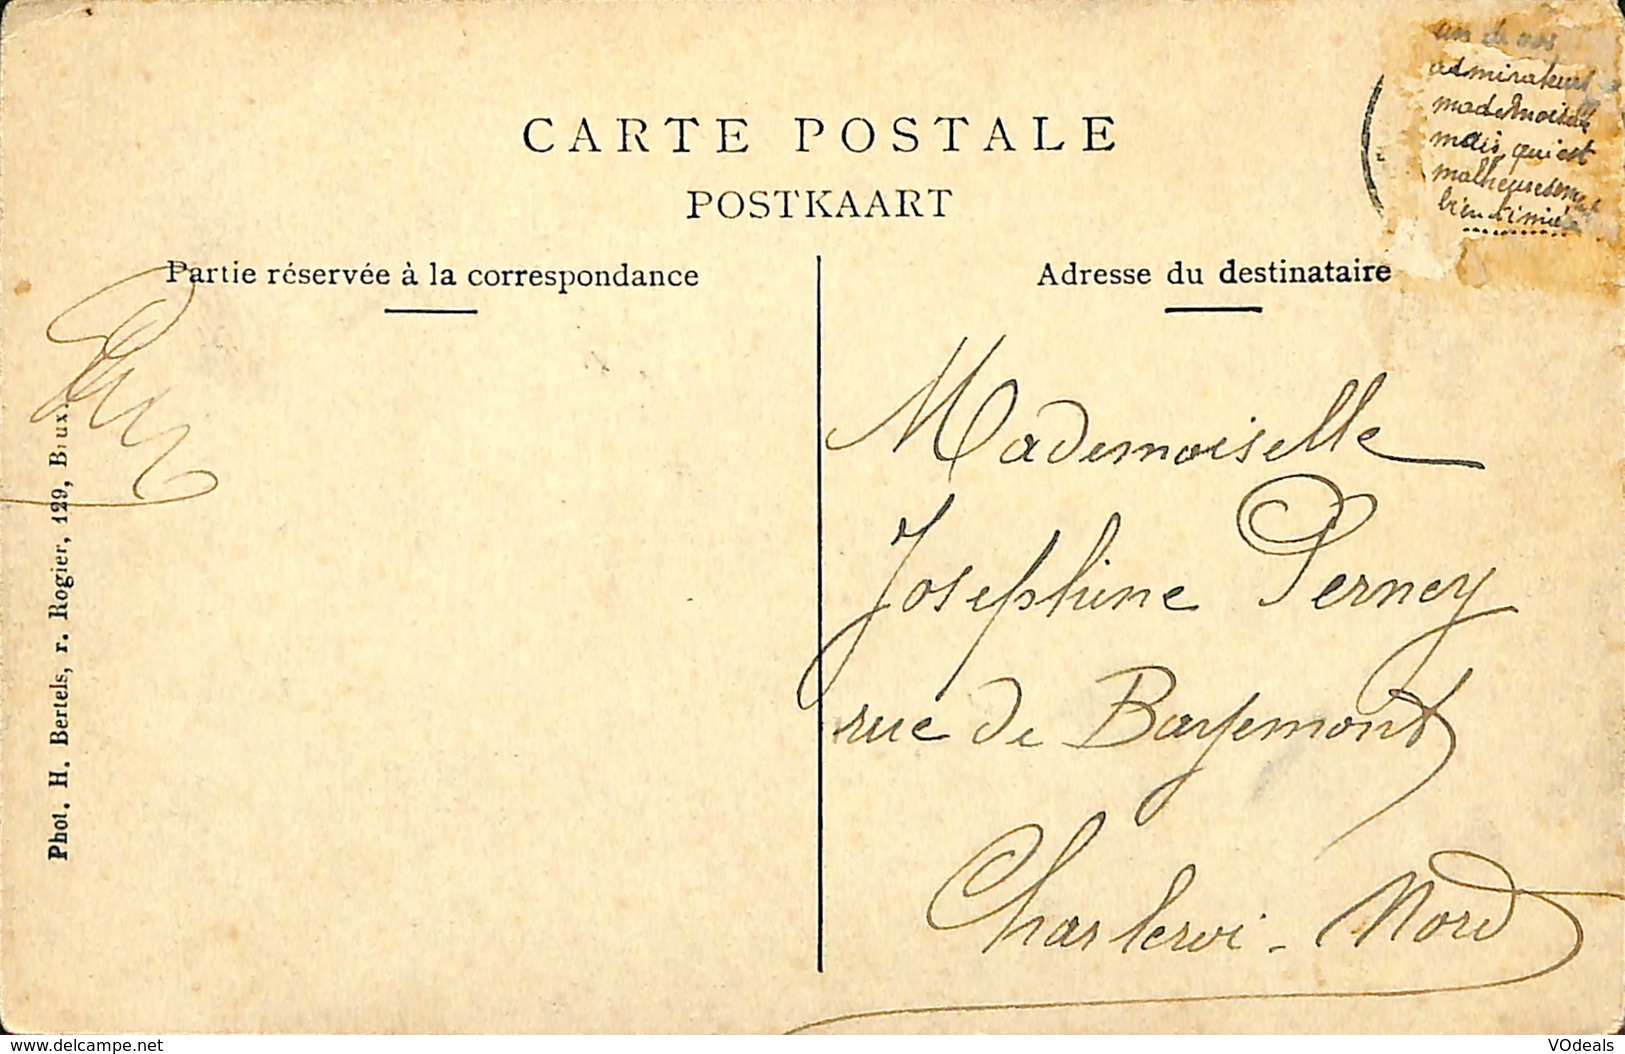 un de vos
admirateurs
mademoiselle
mais qui est
malheureusement
bien timide
CARTE POSTALE
POSTKAART
Partie réservée à la correspondance
Adresse du destinataire
Mademoiselle
Josephine Perney
rue de Bayemont
Charleroi - Nord
Phot. H. Bertels, r. Rogier, 129, Brux.
www.delcampe.net
VOdeals